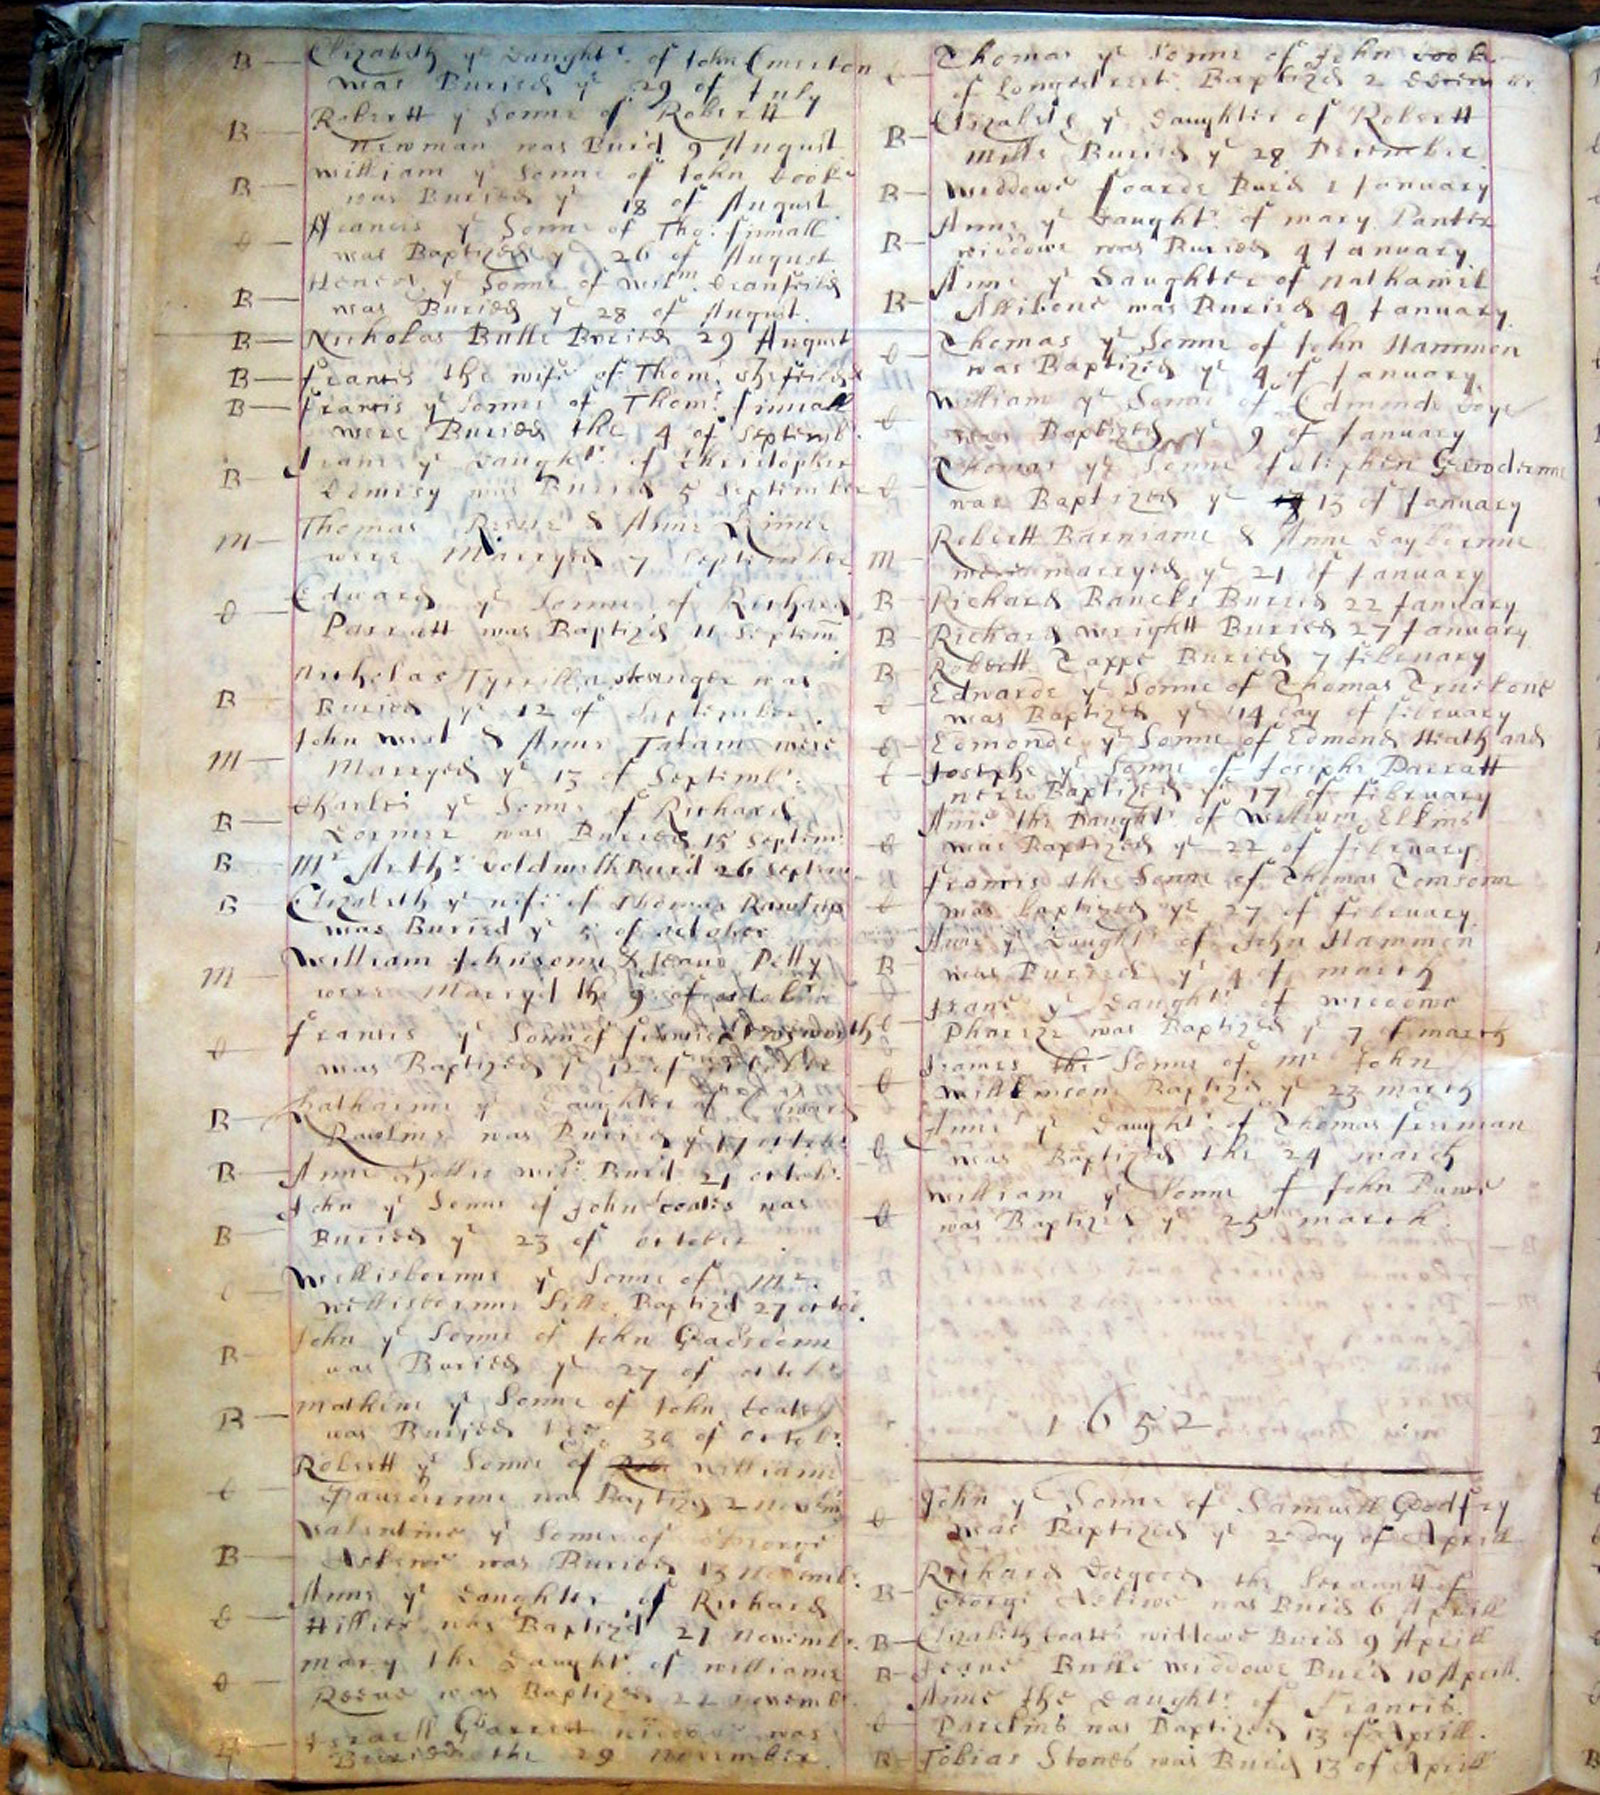 B Elizabeth ye Daughtr. of John Emerton
was Buried ye 29 of July
B Robertt ye Sonne of Robertt
Newman was Buried 9 August
B William ye Sonne of John Cooke
was Buried ye 18 of August
C Francis ye Sonne of Tho: Finnall
was Baptized ye 26 of August
B ye Sonne of Willm.
was Buried ye 28 of August.
B Nicholas Butle Buried 29 August
B Francis the wife of Thom: Shefeild
B Francis ye Sonne of Thom: Finnall
were Buried the 4 of Septemb:
B Jeane ye Daughtr. of Christopher
was Buried 5 September
M Thomas & Anne
were Marryed 7 September
C Edward ye Sonne of Richard
Parratt was Baptized 11 Septem
Nicholas Tyrrill a stranger was
B Buried ye 12 of September.
John West & Anne Tatam were
M Marryed ye 13 of Septembr.
Charles ye Sonne of Richard
B was Buried 15 Septem:
B Mr Arthr: Coldwell Buried 26 Septem
B Elizabeth ye wife of Thomas Rawlins
was Buried ye 5 of october
William Johnsonne & Jeane Petty
M were Marryed the 9 of october
Francis ye Sonne of
C was Baptized ye 12 of october
Katharine ye Daughter of Edward
B Rawlins was Buried ye 17 octob:
B Anne wid: Buried 21 octob:
John ye Sonne of John Coates was
B Buried ye 23 of october.
Wellisborne ye Sonne of Mr.
C Wellisborne Sille Baptized 27 octob.
John ye Sonne of John Gadsdenn
B was Buried ye 27 of octobr
Mathew ye Sonne of John Coates
B was Buried the 30 of octobr:
Robertt ye Sonne of Williame
C was Baptized 2 Novem
Valentine ye Sonne of George
B Askewe was Buried 13 Novemb:
Anne ye Daughter of Richard
C Hillier was Baptized 21 Novemb:
Mary the Daughtr. of Williame
C Reeve was Baptized 22 Novemb:
Garret was
B Buried the 29 November.
Thomas ye Sonne of John Cooke
C of Longstreet. Baptized 2
Elizabeth ye Daughter of Robertt
B Mills Buried ye 28 December
B Widdowe Foarde Buried 1 January
Anne ye Daughtr. of Mary Panter
B widdowe was Buried 4 January
Anne ye Daughter of Nathaniel
B Allibone was Buried 4 January
Thomas ye Sonne of John Hammon
C was Baptized ye 4 of January
William ye Sonne of Edmonde
C was Baptized ye 9 of January
Thomas ye Sonne of Stephen
C was Baptized ye 13 of January
Robertt & Anne
M were marryed ye 21 of January
B Richard Bancks Buried 22 January
B Richard Wrightt Buried 27 January
B Robertt Tappe Buried 7 February
Edwarde ye Sonne of Thomas Truelone
C was Baptized ye 14 day of February
C Edmonde ye Sonne of Edmond
C Josephe ye Sonne of Josephe Parratt
were Baptized ye 17 of February
Anne the Daughtr. of William Elkins
C was Baptized ye 22 of February
Francis the Sonne of Thomas Tomsonn
C was baptized ye 27 of February
Anne ye Daughtr. of John Hammon
B was Buried ye 4 of March
Jeane ye Daughtr. of widdowe
C was Baptized ye 7 of march
James the Sonne of Mr John
C Wilkinson Baptized ye 23 march
Anne ye Daughtr. of Thomas
C was Baptized the 24 march
William ye Sonne of John
C was Baptized ye 25 march.
1652
John ye Sonne of Samuell Goodfry
C was Baptized ye 2 day of Aprill
Richard the Servantt of
B George Askewe was Buried 6 Aprill
B Elizabeth Coates widdowe Buried 9 Aprill
B Jeane Butle widdowe Buried 10 Aprill.
Anne the Daughtr. of Francis
C was Baptized 13 of Aprill.
B Tobias Stones was Buried 13 of Aprill